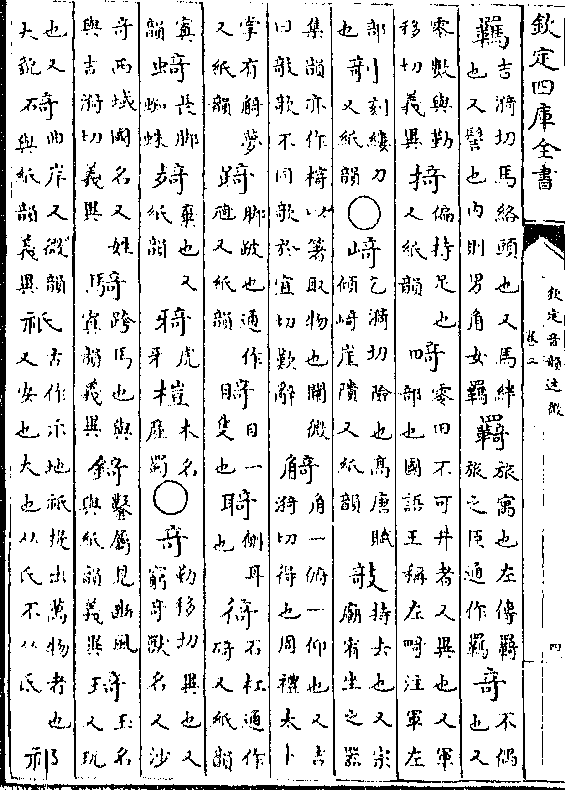 欽定四庫全書
欽定音韻述微
卷二
四
羈吉漪切馬絡頭也又馬絆也又髻也内則男角女羈羇旅寓也左傳羇旅之臣通作羈奇不偶也又
零數與勤移切義異掎偏持足也又紙韻畸零田不可井者又異也又軍部也國語王稱左畸注軍左
部也剞刻鏤刀又紙韻○崎乞漪切險也高唐賦傾崎崖隤又紙韻攲持去也又宗廟宥坐之器
集韻亦作㩻以箸取物也關微曰敧歌不同歌於宜切歎辭觭角一俯一仰也又吉漪切得也周禮太卜
掌有觭夢又紙韻踦脚跛也通作又紙韻目一隻也側耳也徛石杠通作碕又紙韻
寘韻長脚蜘蛛棄也又紙韻虎牙榿木名產蜀○奇勤移切異也又窮奇獸名又沙
奇西域國名又姓與吉漪切義異騎跨馬也與寘韻義異錡鑿屬見豳風與紙韻義異琦玉名又玩
也又大貌碕曲岸又微韻與紙韻義異祇古作示地祇提出萬物者也又安也大也从氏不从氐示